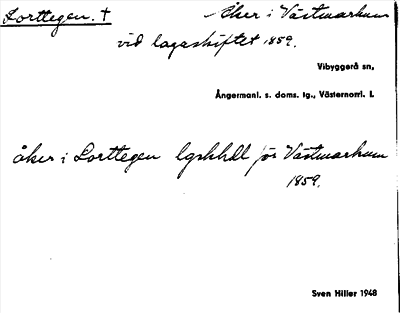 Lorttegen. † Åker i Västmarkum
vid lagaskiftet 1859.
Vibyggerå sn,
Ångermanl. s. doms. tg., Västernorrl. l.
åker i Lorttegen lgskhdl för Västmarkum
1859.
Sven Hiller 1948